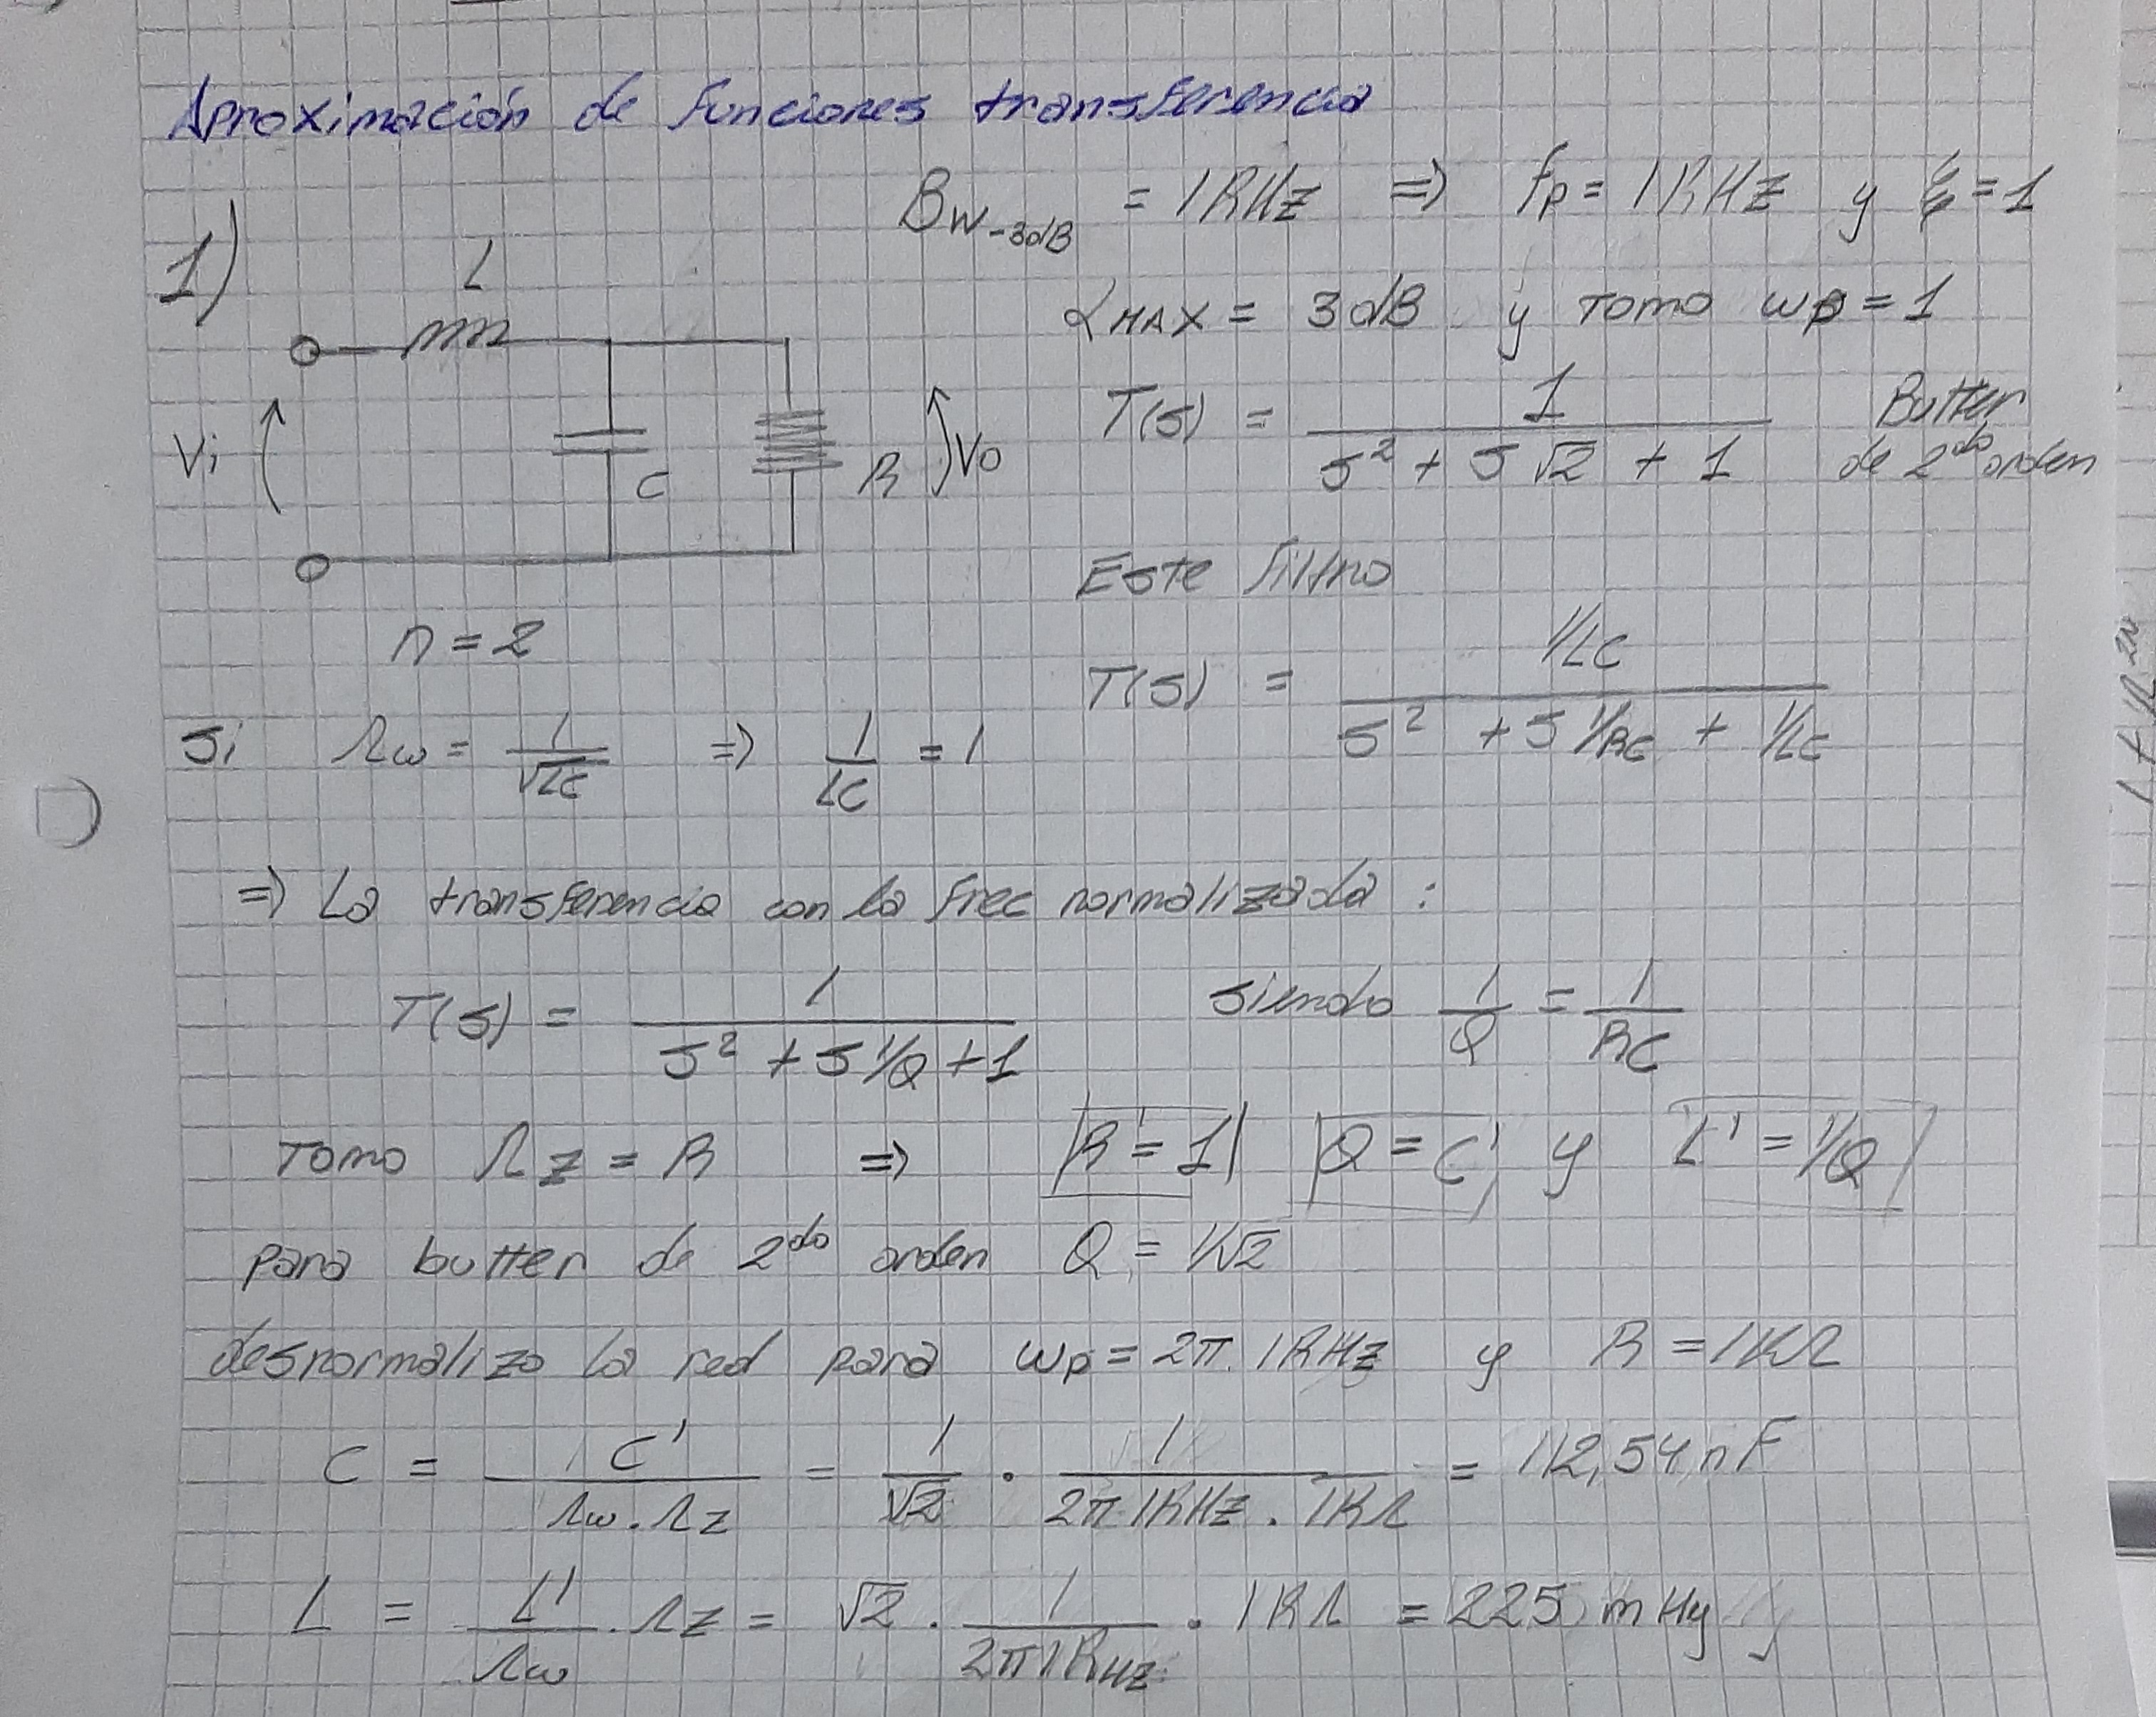 Aproximación de funciones transferencia
1)
BW-3dB = 1KHz => fp = 1KHz y ξ = 1
αMAX = 3dB y tomo wp = 1
L
Vi
C
R
Vo
T(s) = 1 / (s² + s √2 + 1) Butter de 2do orden
Este filtro
n = 2
T(s) = 1/LC / (s² + s 1/RC + 1/LC)
Si Ωω = 1/√LC => 1/LC = 1
=> La transferencia con la frec normalizada :
T(s) = 1 / (s² + s 1/Q + 1) siendo 1/Q = 1/RC
Tomo Ωz = R => R' = 1 Q = C' y L' = 1/Q
para butter de 2do orden Q = 1/√2
desnormalizo la red para wp = 2π. 1KHz y R = 1KΩ
C = C' / (Ωω . Ωz) = 1/√2 . 1 / (2π 1KHz . 1KΩ) = 112,54 nF
L = L'/Ωω . Ωz = √2 . 1 / (2π 1KHz) . 1KΩ = 225 mHy